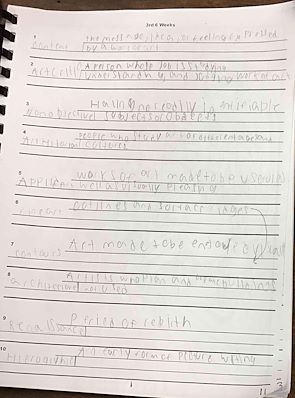 3rd 6 Weeks
1
the message, idea, or feeling expressed
content by a work of art
2
a person whose job is studying
Art critic understanding, and judging works of art
3
Having no readily identifiable
Nonobjective subjects or objects
4
people who study art or different ages and
Art historian cultures
5
works of art made to be useful as
Applied as well as visually pleasing
6
outlines and surface ridges
7
Art made to be enjoyed visually
contours
8
Artists who plan and make buildings
architecture
9
Period of rebirth
Renaissance
10
An early form of picture writing
Hieroglyphic
11